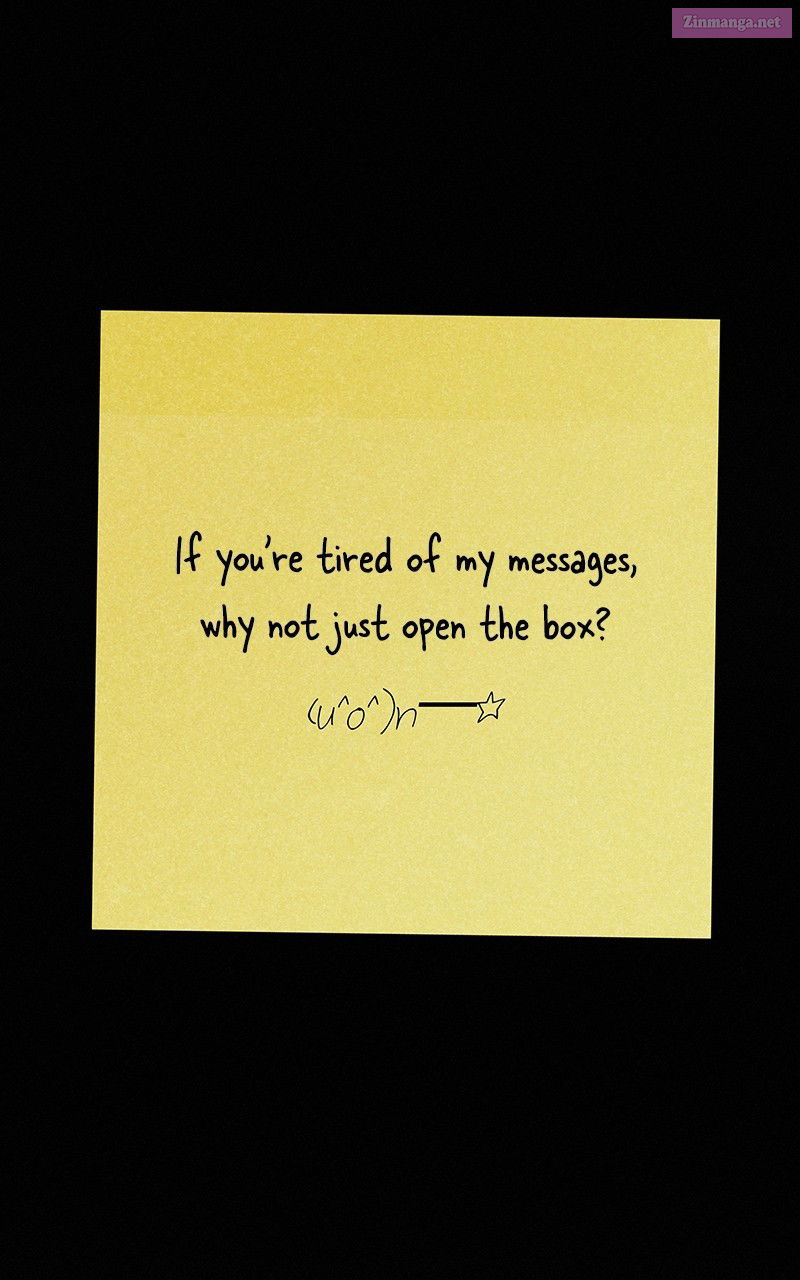 Zinmanga.net
If you're tired of my messages,
why not just open the box?
(u^o^)n━━☆